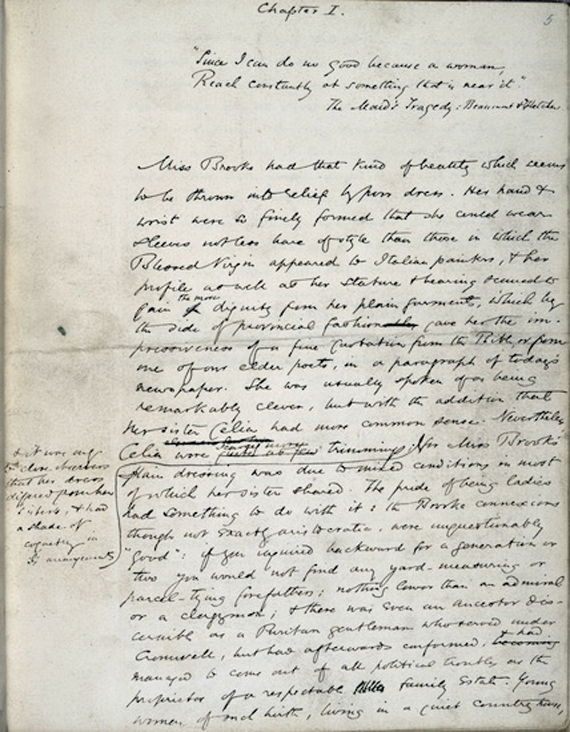 Chapter I.
5
"Since I can do no good because a woman,
Reach constantly at something that is near it."
The Maid's Tragedy: Beaumont & Fletcher.
Miss Brooke had that kind of beauty which seems
to be thrown into relief by poor dress. Her hand &
wrist were so finely formed that she could wear
sleeves not less bare of style than those in which the
Blessed Virgin appeared to Italian painters, & her
profile as well as her stature & bearing seemed to
gain the more dignity from her plain garments, which by
the side of provincial fashion gave her the im-
pressiveness of a fine quotation from the Bible, or from
one of our elder poets, in a paragraph of today's
newspaper. She was usually spoken of as being
remarkably clever, but with the addition that
her sister Celia had more common sense. Nevertheless
Celia wore scarcely more trimmings;
& it was only
to close observers
that her dress
differed from her
sister's, & had
a shade of
coquetry in
its arrangements
for Miss Brooke's
plain dressing was due to mixed conditions in most
of which her sister shared. The pride of being ladies
had something to do with it: the Brooke connexions
though not exactly aristocratic, were unquestionably
"good": if you inquired backward for a generation or
two you would not find any yard-measuring or
parcel-tying forefathers; nothing lower than an admiral
or a clergyman; & there was even an ancestor dis-
cernible as a Puritan gentleman who served under
Cromwell, but had afterwards conformed, & had
managed to come out of all political troubles as the
proprietor of a respectable family estate. Young
women of such birth, living in a quiet country house,